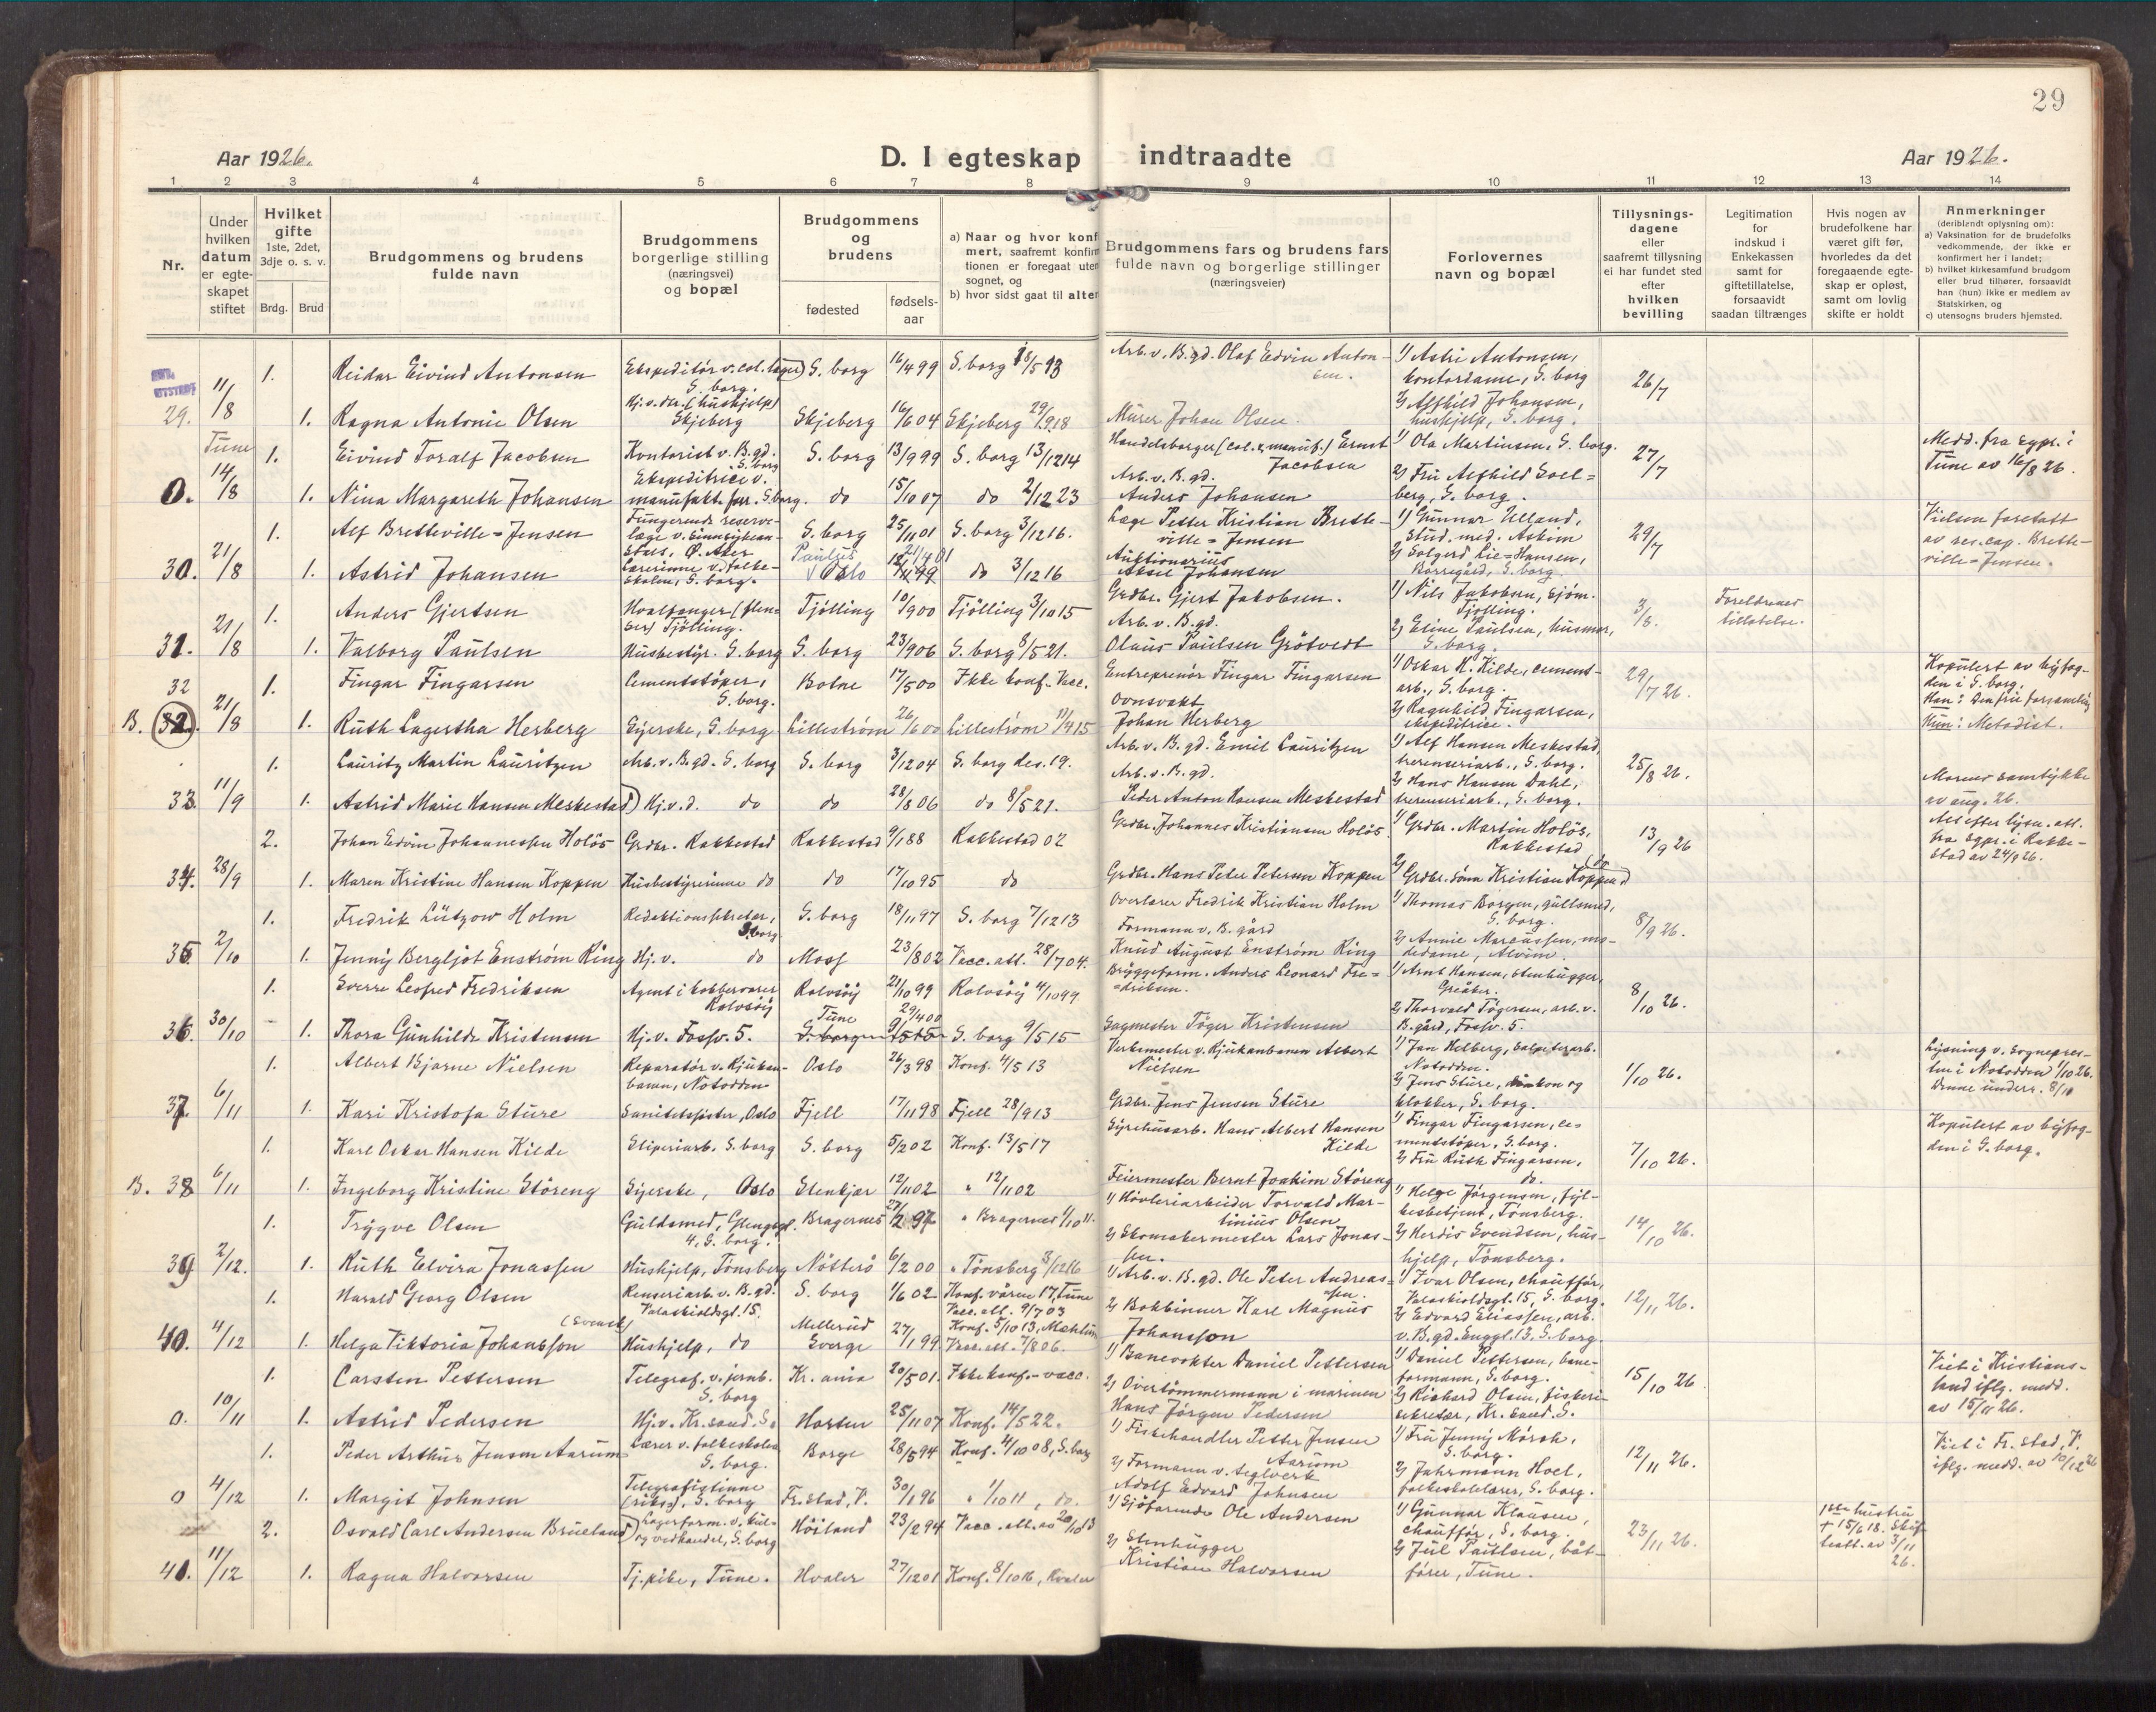 29
Aar 1926.
D. I egteskap indtraadte
Aar 1926.
1 2 3 4 5 6 7 8 9 10 11 12 13 14
Nr.
Under hvilken datum er egteskapet stiftet
Hvilket gifte
1ste, 2det, 3dje o. s. v.
Brdg. Brud
Brudgommens og brudens fulde navn
Brudgommens borgerlige stilling (næringsvei) og bopæl
Brudgommens og brudens
fødested
fødsels-aar
a) Naar og hvor konf
mert, saafremt konfir
tionen er foregaat uten
sognet, og
b) hvor sidst gaat til alter
Brudgommens fars og brudens fars
fulde navn og borgerlige stillinger
(næringsveier)
Forlovernes
navn og bopæl
Tillysnings-
dagene
eller
saafremt tillysning
ei har fundet sted
efter
hvilken
bevilling
Legitimation
for
indskud i
Enkekassen
samt for
giftetillatelse,
forsaavidt
saadan tiltrænges
Hvis nogen av
brudefolkene har
været gift før,
hvorledes da det
foregaaende egte-
skap er opløst,
samt om lovlig
skifte er holdt
Anmerkninger
(deriblandt oplysning om):
a) Vaksination for de brudefolks
vedkommende, der ikke er
konfirmert her i landet;
b) hvilket kirkesamfund brudgom
eller brud tilhører, forsaavidt
han (hun) ikke er medlem av
Statskirken, og
c) utensogns bruders hjemsted.
1. Reidar Eivind Antonsen Ekspeditør v. col. lager S. borg. S. borg 16/4 99 S. borg 18/5 13 Arb. v. B. gd. Olaf Edvin Antonsen. 1) Astri Antonsen, kontordame, S. borg 26/7
29. 11/8 1. Ragna Antonie Olsen Hj. v. do. (hushjelp) Skjeberg Skjeberg 16/6 04 Skjeberg 29/9 18 Murer Johan Olsen. 2) Alfhild Johansen, hushjelp, S. borg.
Tune 1. Eivind Toralf Jacobsen Kontorist v. B. gd. S. borg S. borg 13/9 99 S. borg 13/12 14 Handelsborger (col. & manuf.) Ernst Jacobsen 1) Ola Martinsen, S. borg. 27/7 Medd. fra sgpr. i Tune av 16/8 26.
0. 14/8 1. Nina Margareth Johansen Ekspeditrice v. manufakt. forr. S. borg. do 15/10 07 do 2/12 23 Arb. v. B. gd. Anders Johansen 2) Fru Alfhild Soelberg, S. borg.
1. Alf Bretteville-Jensen Fungerende reservelæge v. Sinnsykean-stals, Ø. Aker S. borg 25/11 01 S. borg 3/12 16. Læge Petter Kristian Bretteville-Jensen 1) Gunnar Ulland, Stud. med. Askim 29/7 Vielsen foretatt av res. cap. Bretteville-Jensen.
30. 21/8 1. Astrid Johansen Lærerinne v. folkeskolen, S. borg. Paulus Oslo do 3/12 16 Auktionarius Aksel Johansen 2) Solgerd Lie-Hansen, Borregård, S. borg.
1. Anders Gjertsen Hvalfanger (flenser) Tjölling. Tjölling 10/9 00 Tjölling 3/10 15 Grdbr. Gjert Jakobsen. 1) Nils Jakobsen, sjöm. Tjölling. 3/8. Foreldrenes tillatelse.
31. 21/8 1. Valborg Paulsen Husbestyr. S. borg S. borg 23/9 06 S. borg 8/5 21. Arb. v. B. gd. Olaus Paulsen Grötvedt 2) Eline Paulsen, husmor, S. borg.
32 1. Fingar Fingarsen Cementstöper, S. borg. Botne 17/5 00 Ikke konf.-Vacc. Entreprenör Fingar Fingarsen 1) Oskar H. Kilde, cementarb., S. borg. 29/7 26. Kopulert av byfogden i S. borg. Han: Den frie forsamling
B. 32. 21/8 1. Ruth Lagertha Herberg Syerske, S. borg Lilleström 26/6 00 Lilleström 11/4 15 Ovnsvakt Johan Herberg 2) Ragnhild Fingarsen, ekspeditrise. Hun: Metodist.
1. Lauritz Martin Lauritzen Arb. v. B. gd. S. borg S. borg 3/12 04 S. borg des. 19. Arb. v. B. gd. Emil Lauritzen 1) Alf Hansen Meskestad, S. borg. 25/8 26.
33. 11/9 1. Astrid Marie Hansen Meskestad Hj. v. d. do do 28/8 06 do 8/5 21. Arb. v. B. gd. Peder Anton Hansen Meskestad 2) Hans Hansen Dahl, S. borg. Morens samtykke av aug. 26.
2. Johan Edvin Johannessen Holös Grdbr. Rakkestad Rakkestad 9/1 88 Rakkestad 02 Grdbr. Johannes Kristiansen Holös 1) Grdbr. Martin Holös, Rakkestad 13/9 26 fra sgpr. i Rakkestad av 24/9 26.
34. 28/9 1. Maren Kristine Hansen Koppen Husbestyrerinne do do 17/10 95 do Grdbr. Hans Peter Petersen Koppen 2) Grdbr. sönn Kristian Koppen do
1. Fredrik Lützow Holm Redaktionssekretær, S. borg S. borg 18/11 97 S. borg 7/12 13 Overlærer Fredrik Kristian Holm 1) Thomas Borgen, gullsmed, S. borg. 8/9 26.
35 2/10 1. Jenny Bergljot Enström Ring Hj. v. do Moss 23/8 02 Vacc. att. 28/7 04. Formann v. B. gård Knud August Enström Ring 2) Annie Marcussen, modedame, Alvim.
1. Sverre Leofred Fredriksen Agent i kobbervarer Rolvsöy Rolvsöy 21/10 99 Rolvsöy 4/10 99 Bryggeform. Anders Leonard Fredriksen. 1) Arnt Hansen, Stenhugger, Greåker. 8/10 26.
36. 30/10 1. Thora Gunhilde Kristensen Hj. v. Fossv. 5. Tune 29/4 00 S. borg 9/5 15 Sagmester Töger Kristensen 2) Thorvald Tögersen, arb. v. B. gård, Fossv. 5.
1. Albert Bjarne Nielsen Reparatör v. Rjukanbanen, Notodden Oslo 26/3 98 Konf. 4/5 13 Verksmester v. Rjukanbanen Albert Nielsen 1) Jan Helberg, Salpeterarb. Notodden. 1/10 26. Lysning v. sognepresten i Notodden 1/10 26.
37. 6/11 1. Kari Kristofa Sture Sanitetssöster, Oslo Fjell 17/11 98 Fjell 28/9 13 Grdbr. Jens Jensen Sture 2) Jens Sture, diakon og klokker, S. borg.
1. Karl Oskar Hansen Kilde Sliperiarb. S. borg S. borg 5/2 02 Konf. 13/5 17 Syrehusarb. Hans Albert Hansen Kilde 1) Fingar Fingarsen, cementstöper, S. borg. 7/10 26. Kopulert av byfogden i S. borg.
B. 38 6/11 1. Ingeborg Kristine Störeng Syerske, Oslo Stenkjær 12/11 02 " 12/11 02 Feiermester Bernt Joakim Störeng 2) Fru Ruth Fingarsen, do.
1. Trygve Olsen Guldsmed, Glengsgt. 4, S. borg. Bragernes 27/2 97 " Bragernes 1/10 11. 1) Hövleriarbeider Torvald Martinius Olsen 1) Helge Jörgensen, fylkesbetjent, Tönsberg. 14/10 26.
39 2/12. 1. Ruth Elvira Jonassen Hushjelp, Tönsberg Nötterö 6/2 00 " Tönsberg 3/12 16 2) Skomakermester Lars Jonassen. 2) Herdis Svendsen, hushjelp, Tönsberg.
1. Harald Georg Olsen Renseriarb. v. B. gd. Valaskioldsgt. 15. S. borg 1/6 02 Konf. våren 17, Tune Vacc. att. 9/7 03 1) Arb. v. B. gd. Ole Peter Andreassen. 1) Ivar Olsen, chauffør, Valaskioldsgt. 15, S. borg. 12/11 26.
40. 4/12 1. Helga Viktoria Johansson (svensk) Hushjelp, do Mellerud Sverge 27/1 99 Konf. 5/10 13, Vacc. att. 7/8 06. 2) Bokbinner Karl Magnus Johansson 2) Edvard Eliassen, arb. v. B. gd. Enggt. 13. S. borg.
1. Carsten Pettersen Telegraf. v. jernb. S. borg Kr. ania 20/5 01. Ikke konf.-vacc. 1) Banevokter Daniel Pettersen 1) Daniel Pettersen, baneformann, S. borg. 15/10 26 Viet i Kristiansand iflg. medd. av 15/11 26.
0. 10/11 1. Astrid Pedersen Hj. v. Kr. sand. S. Horten 25/11 07 Konf. 14/5 22. 2) Overtömmermann i marinen Hans Jörgen Pedersen 2) Rikhard Olsen, fiskerisekretær, Kr. sand. S.
1. Peder Arthur Jensen Aarum Lærer v. folkeskolen S. borg. Borge 28/5 94 Konf. 4/10 08, S. borg 1) Fiskehandler Petter Jensen Aarum 1) Fru Jenny Mörch, S. borg. 12/11 26. Viet i Fr. stad, V. iflg. medd. av 10/12 26
0 4/12 1. Margit Johnsen Telegrafistinne (riks), S. borg Fr. stad, V. 30/1 96 " 1/10 11, do. 2) Formann v. teglverk Adolf Edvard Johnsen 2) Fuhrmann Hoel, folkeskolelærer, S. borg.
2. Osvald Carl Andersen Brueland Lagerform. v. kul- og vedhandler, S. borg Höiland 23/2 94 Vacc. att. av 20/10 13 1) Sjöfarende Ole Andersen 1) Gunnar Klausen, chauffør, S. borg. 23/11 26. 1ste hustru † 15/6 18. Skifteatt. av 3/11 26.
41. 11/12 1. Ragna Halvorsen Tj. pike, Tune. Hvaler 27/12 01 Konf. 8/10 16, Hvaler 2) Stenhugger Kristian Halvorsen 2) Jul Paulsen, båtfører, Tune.